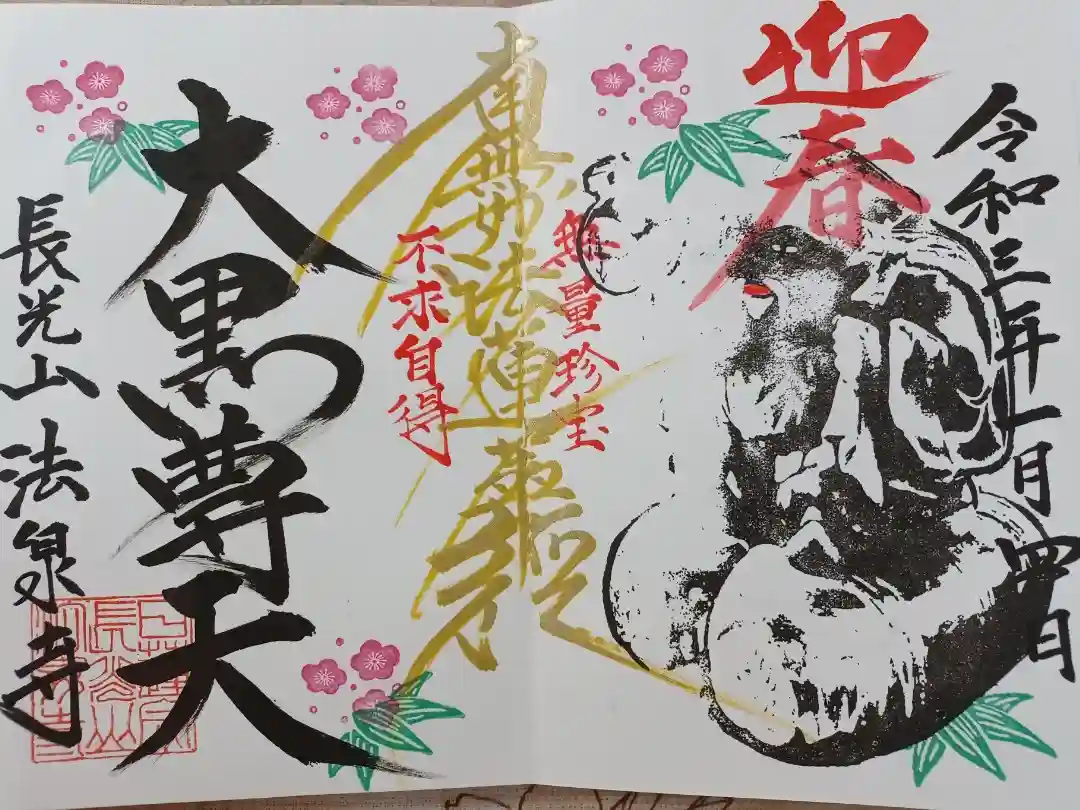 迎春
令和三年一月四日
無量珍宝
南無妙法蓮華経
不求自得
大黒尊天
長光山法泉寺